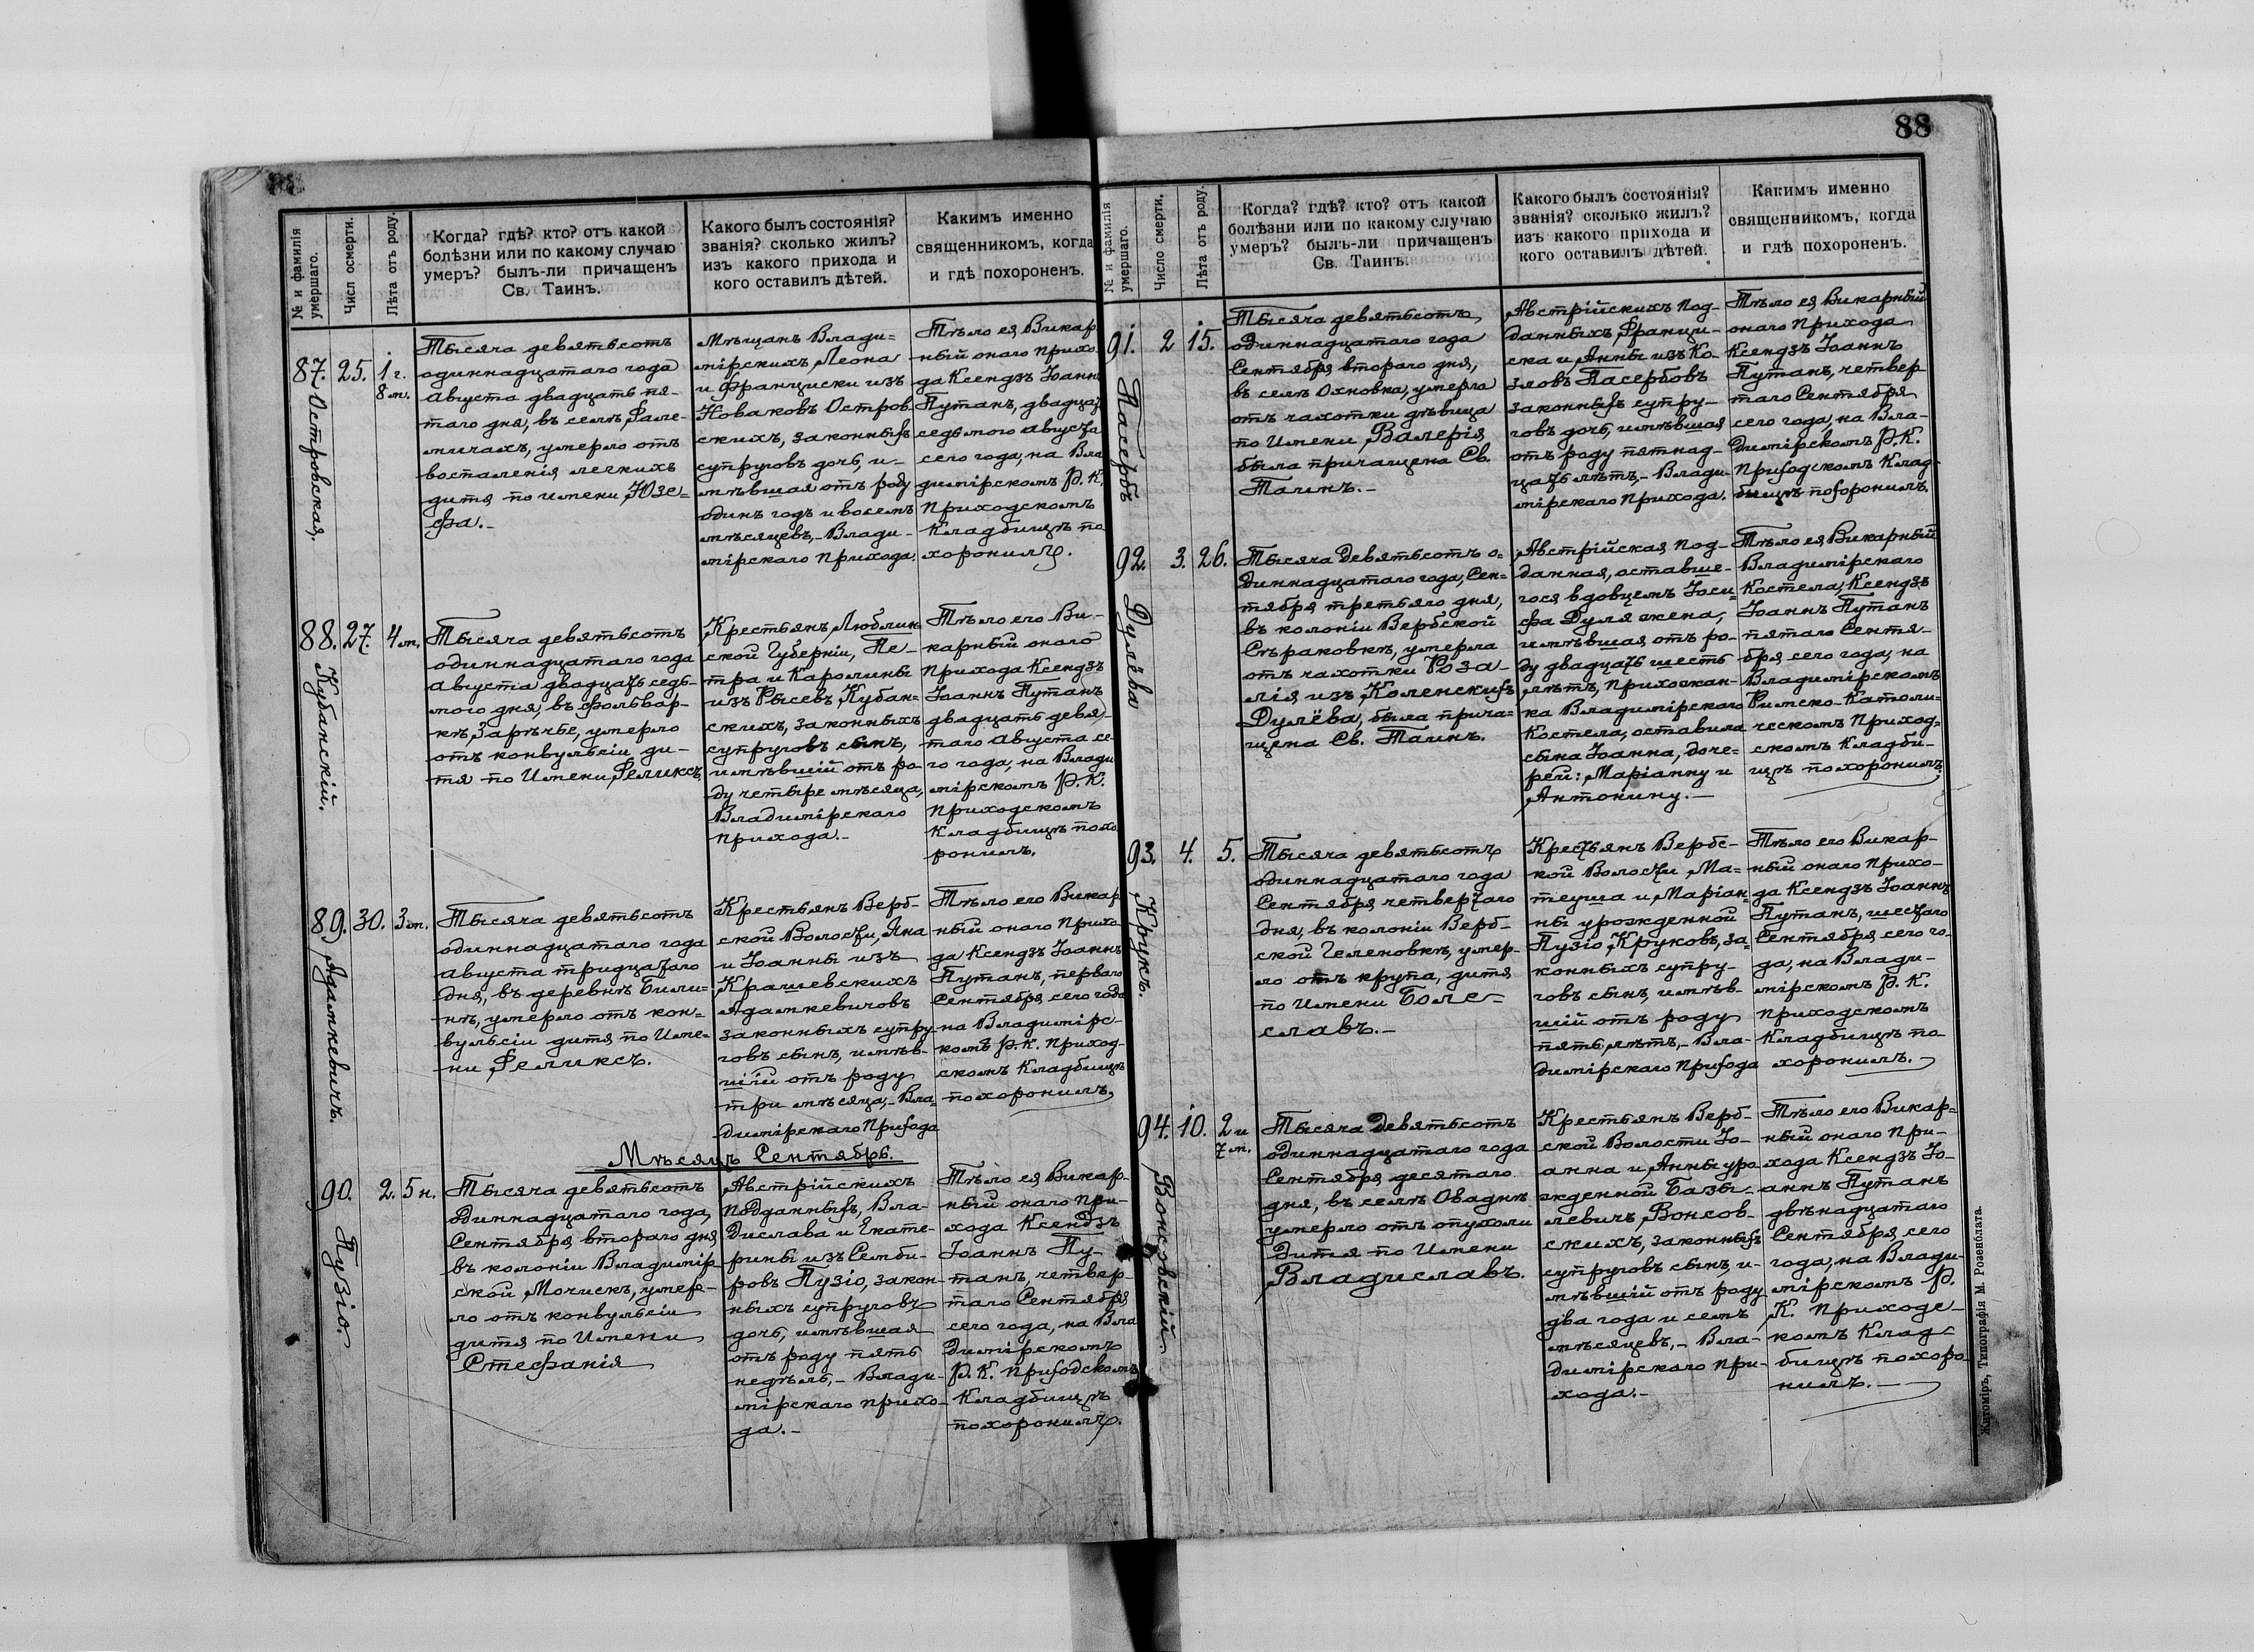 88
№ и фамилія умершаго.
Числ осмерти.
Лѣта отъ роду.
Когда? гдѣ? кто? отъ какой
болѣзни или по какому случаю
умеръ? былъ-ли причащенъ
Св. Таинъ.
Какого былъ состоянія?
званія? сколько жилъ?
изъ какого прихода и
кого оставилъ дѣтей.
Какимъ именно
священникомъ, когда
и гдѣ похороненъ.
87. Островская.
25.
1 г.
8 м.
Тысяча девятьсотъ
одиннадцатаго года
Августа двадцать пя-
таго дня, въ селѣ Фале-
мичахъ, умерло отъ
воспаленія легкихъ
дитя по имени Юзе=
фа.-
Мѣщанъ Влади=
мірскихъ, Леона
и Франциски изъ
Новаковъ Островс
скихъ, законныхъ
супруговъ дочь, и-
мѣвшая отъ роду
одинъ годъ и восемь
мѣсяцевъ,- Влади-
мірскаго прихода.
Тѣло ея Викар
ный онаго прихо
да Ксендзъ Іоаннъ
Путанъ, двадцать
седьмого Августа
сего года, на Вла
димірскомъ Р. К.
приходскомъ
Кладбищѣ по
хоронилъ.
88. Кубанскій.
27.
4 м.
Тысяча девятьсотъ
одиннадцатаго года
Августа двадцать седь-
мого дня, въ фольвар-
кѣ, Зарѣчье, умерло
отъ конвульсіи, ди-
тя по Имени Феликсъ.
Крестьянъ, Люблин
ской Губерніи, Пе-
тра и Каролины
изъ Рысевъ Кубан-
скихъ, законныхъ
супруговъ сынъ,
имѣвшій отъ ро-
ду четыре мѣсяца,
Владимірскаго
прихода.-
Тѣло его Ви-
карный онаго
прихода Ксендзъ
Іоаннъ Путанъ
двадцать девя-
таго Августа се-
го года, на Влади
мірскомъ Р. К.
приходскомъ
Кладбищѣ похо
ронилъ.
89. Адамкевичъ.
30.
3 м.
Тысяча девятьсотъ
одиннадцатаго года
Августа тридцатаго
дня, въ деревнѣ Били=
нѣ, умерло отъ кон=
вульсіи дитя по Име=
ни Феликсъ.
Крестьянъ Верб-
ской Волости, Яна
и Іоанны изъ
Крашевскихъ
Адамкевичовъ
законныхъ супру
говъ сынъ, имѣв-
шій отъ роду
три мѣсяца,- Вла=
димірскаго Прихода
Тѣло его Викар
ный онаго прихо
да Ксендзъ Іоаннъ
Путанъ, перваго
Сентября, сего года
на Владимірс-
комъ Р. К. приход-
скомъ Кладбищѣ
похоронилъ.
Мѣсяцъ Сентябрь.
90. Пузіо.
2.
5 н.
Тысяча девятьсотъ
одиннадцатаго года,
Сентября второго дня
въ колоніи Владимір-
ской Мочискъ, умер-
ло отъ конвульсіи
дитя по Имени
Стефанія
Австрійскихъ
подданныхъ, Вла-
дислава и Екате-
рины изъ Семби-
ровъ Пузіо, закон-
ныхъ супруговъ
дочь, имѣвшая
отъ роду пять
недѣль,- Влади-
мірскаго прихо-
да.-
Тѣло ея Викар-
ный онаго при-
хода Ксендзъ
Іоаннъ Пу-
танъ, четвер-
таго Сентября
сего года, на Вла
димірскомъ
Р. К. приходскомъ
Кладбищѣ
похоронилъ.
88
№ и фамилія умершаго.
Число смерти.
Лѣта отъ роду.
Когда? гдѣ? кто? отъ какой
болѣзни или по какому случаю
умеръ? былъ-ли причащенъ
Св. Таинъ.
Какого былъ состоянія?
званія? сколько жилъ?
изъ какого прихода и
кого оставилъ дѣтей.
Какимъ именно
священникомъ, когда
и гдѣ похороненъ.
91. Пасербъ
2
15.
Тысяча девятьсотъ
одиннадцатаго года
Сентября второго дня,
въ селѣ Охновка, умерла
отъ чахотки дѣвица
по Имени Валерія
была причащена Св.
Таинъ.-
Австрійскихъ под-
данныхъ, Францис-
ска и Анны изъ Ко-
зловъ Пасербовъ
законныхъ супру-
говъ дочь, имѣвшая
отъ роду пятнад-
цать лѣтъ,- Влади-
мірскаго прихода.
Тѣло ея Викарный
онаго прихода
Ксендзъ Іоаннъ
Путанъ, четвер
таго Сентября
сего года, на Вла-
димірскомъ Р. К.
приходскомъ Клад-
бищѣ похоронилъ.
92. Дулёва
3.
26.
Тысяча девятьсотъ о=
диннадцатаго года, Сен=
тября третьяго дня,
въ колоніи Вербской
Сѣраковкѣ, умерла
отъ чахотки Роза-
лія изъ Коленскихъ
Дулёва, была прича=
щена Св. Таинъ.
Австрійская под-
данная, оставше-
гося вдовцемъ Іоси=
фа Дуля жена,
имѣвшая отъ ро-
ду двадцать шесть
лѣтъ, прихожан-
ка Владимірскаго
Костела, оставила
сына Іоанна, доче=
рей: Маріанну и
Антонину.-
Тѣло ея Викарный
Владимірскаго
Костела, Ксендзъ
Іоаннъ Путанъ
пятаго Сентя-
бря сего года, на
Владимірскомъ
Римско-Католи=
ческомъ приход=
скомъ Кладби-
щѣ похоронилъ.
93. Крукъ.
4.
5.
Тысяча девятьсотъ
одиннадцатаго года
Сентября четвертаго
дня, въ колоніи Верб-
ской Геленовкѣ, умер-
ло отъ крупа, дитя
по Имени Боле-
славъ.-
Крестьянъ Вербс-
кой Волости, Ма=
теуша и Маріан=
ны урожденной
Пузіо, Круковъ, за=
конныхъ супру-
говъ сынъ, имѣв-
шій отъ роду
пять лѣтъ,- Вла-
димірскаго Прихода
Тѣло его Викар-
ный онаго прихо-
да Ксендзъ Іоаннъ
Путанъ, шестаго
Сентября, сего го-
да, на Влади-
мірскомъ Р. К.
приходскомъ
Кладбищѣ по-
хоронилъ.
94. Вонсовскій
10.
2 и
7 м.
Тысяча девятьсотъ
одиннадцатаго года
Сентября десятаго
дня, въ селѣ Оваднѣ
умерло отъ опухоли
дитя по Имени
Владиславъ.
Крестьянъ Верб-
ской Волости Іо-
анна и Анны уро
жденной Базы-
левичъ, Вонсов-
скихъ, законныхъ
супруговъ сынъ, и-
мѣвшій отъ роду
два года и семь
мѣсяцевъ,- Вла-
димірскаго при-
хода.-
Тѣло его Викар=
ный онаго при-
хода Ксендзъ Іо-
аннъ Путанъ
двѣнадцатаго
Сентября сего
года, на Влади-
мірскомъ Р.
К. приходс-
комъ Клад-
бищѣ похоро-
нилъ.-
Житоміръ, Типографія М. Розенблата.